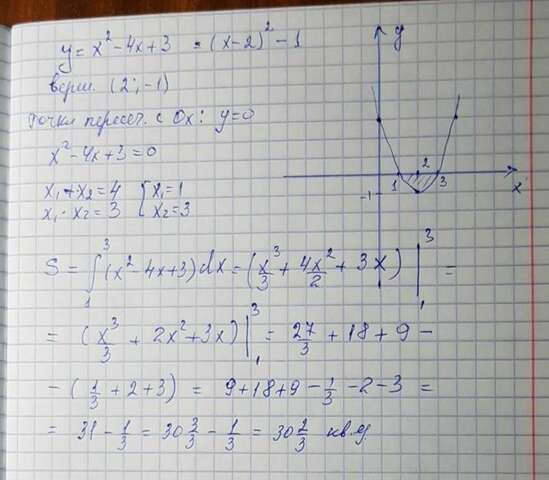 y = x² - 4x + 3 = (x-2)² - 1
верш. (2; -1)
точки пересеч. с Ox: y=0
x² - 4x + 3 = 0
x₁ + x₂ = 4 { x₁ = 1
x₁ · x₂ = 3 x₂ = 3
y
2
1 3
x
-1
S = ∫₁³ (x² - 4x + 3) dx = (x³/3 + 4x²/2 + 3x) |₁³ =
= (x³/3 + 2x² + 3x) |₁³ = 27/3 + 18 + 9 -
- (1/3 + 2 + 3) = 9 + 18 + 9 - 1/3 - 2 - 3 =
= 31 - 1/3 = 30 3/3 - 1/3 = 30 2/3 кв.ед.